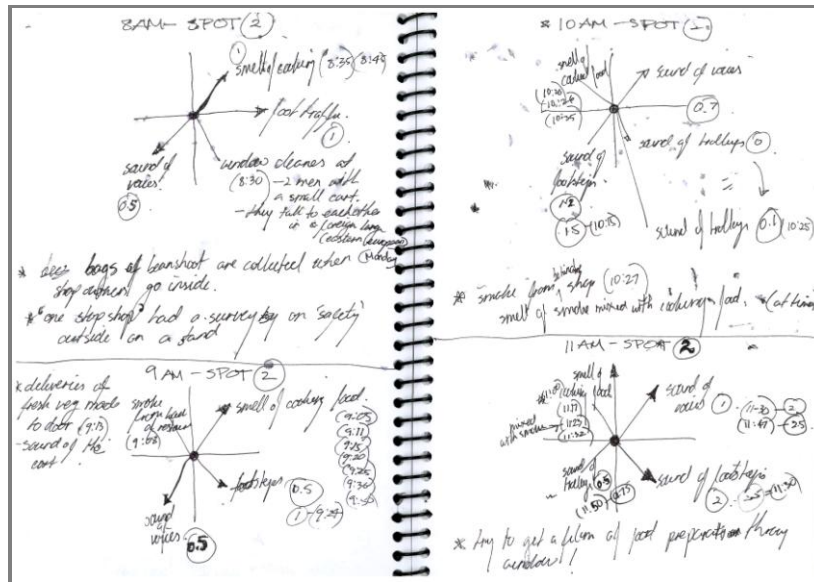 8AM - SPOT 2
1
smell of cooking (8:35) (8:45)
foot traffic
1
sound of
voices
0.5
window cleaners at
(8:30) - 2 men with
a small cart.
- they talk to eachother
in a foreign lang
(eastern european)
* bags of beanshoot are collected when
Monday
shop go inside.
* "one stop shop" had a survey on 'safety'
outside on a stand
9AM - SPOT 2
* deliveries of
fresh veg made
to door (9:13)
- sound of the
cart
smoke
from back
of
(9:08)
smell of cooking food.
(9:05)
(9:11)
(9:15)
(9:20)
(9:25)
(9:30)
(9:50)
footsteps 0.5
1 - (9:24)
sound
of
voices
0.5
10AM - SPOT
smell of
cooked food
(10:24)
(10:25)
sound of voices
0.7
sound of trolleys 0
sound of
footsteps
1.5 - (10:15)
sound of trolleys 0.1 (10:25)
* smoke from shop (10:27)
behind
smell of smoke mixed with cooking food. (at times)
11AM - SPOT 2
smell of
cooking food
(11:17)
(11:25)
(11:32)
mixed
with smoke
sound of
voices 1 - (11:30) - 2
(11:47) - 2.5
sound of
trolleys 0.5
(11:50) - 0.75
sound of footsteps
2 - 2.5 - (11:30)
* try to get a film of food preparation throug
window!